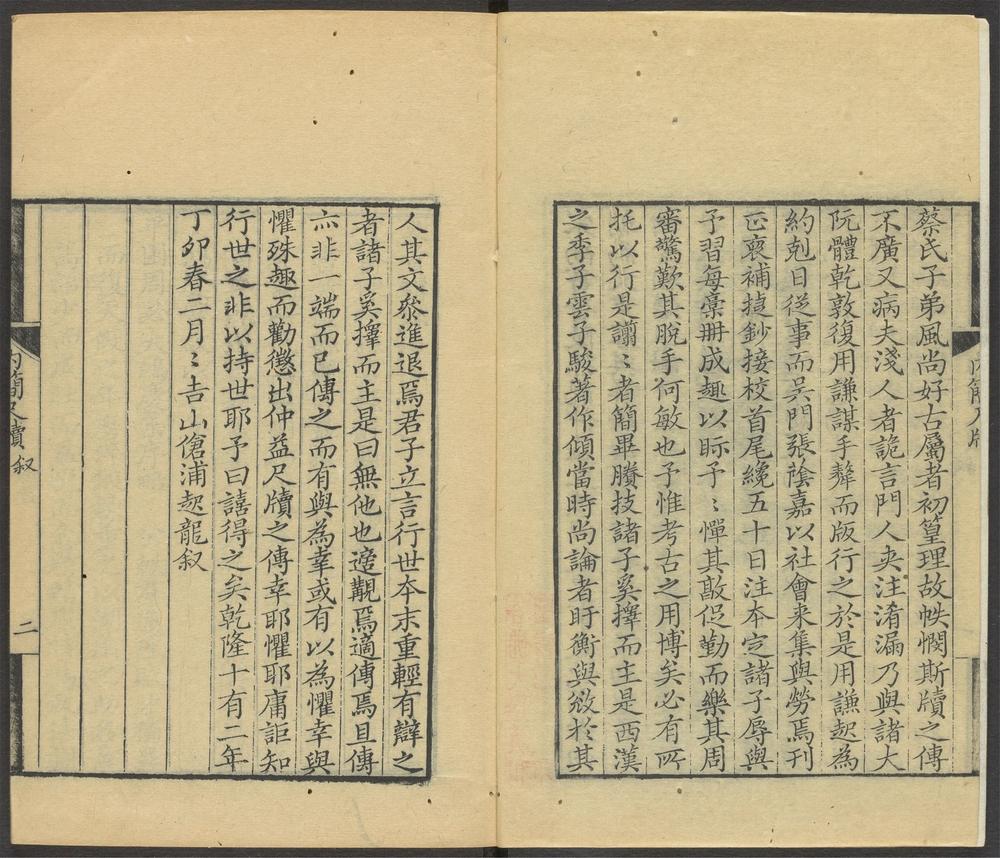 蔡氏子弟風尚好古屬者初篁理故帙憫斯牘之傳
不廣又病夫淺人者詭言門人夾注淆漏乃與諸大
阮體乾敦復用謙謀手辤而版行之於是用謙起為
約剋日從事而吳門張蔭嘉以社會来集與勞焉刊
正裒補揰鈔接校首尾纔五十日注本定諸子辱與
予習每彙冊成趣以眎予〻憚其敦促勤而樂其周
審驚歎其脫手何敏也予惟考古之用博矣必有所
托以行是譾〻者簡畢賸技諸子奚擇而主是西漢
之季子雲子駿著作傾當時尚論者盱衡與敓扵其
人其文叅進退焉君子立言行世本末重輕有辯之
者諸子奚擇而主是曰無他也適覯焉適傳焉且傳
亦非一端而已傳之而有與為幸或有以為懼幸與
懼殊趣而勸懲出仲益尺牘之傳幸耶懼耶庸詎知
行世之非以持世耶予曰譆得之矣乾隆十有二年
丁卯春二月〻吉山傖浦起龍叙
内簡尺牘叙
二